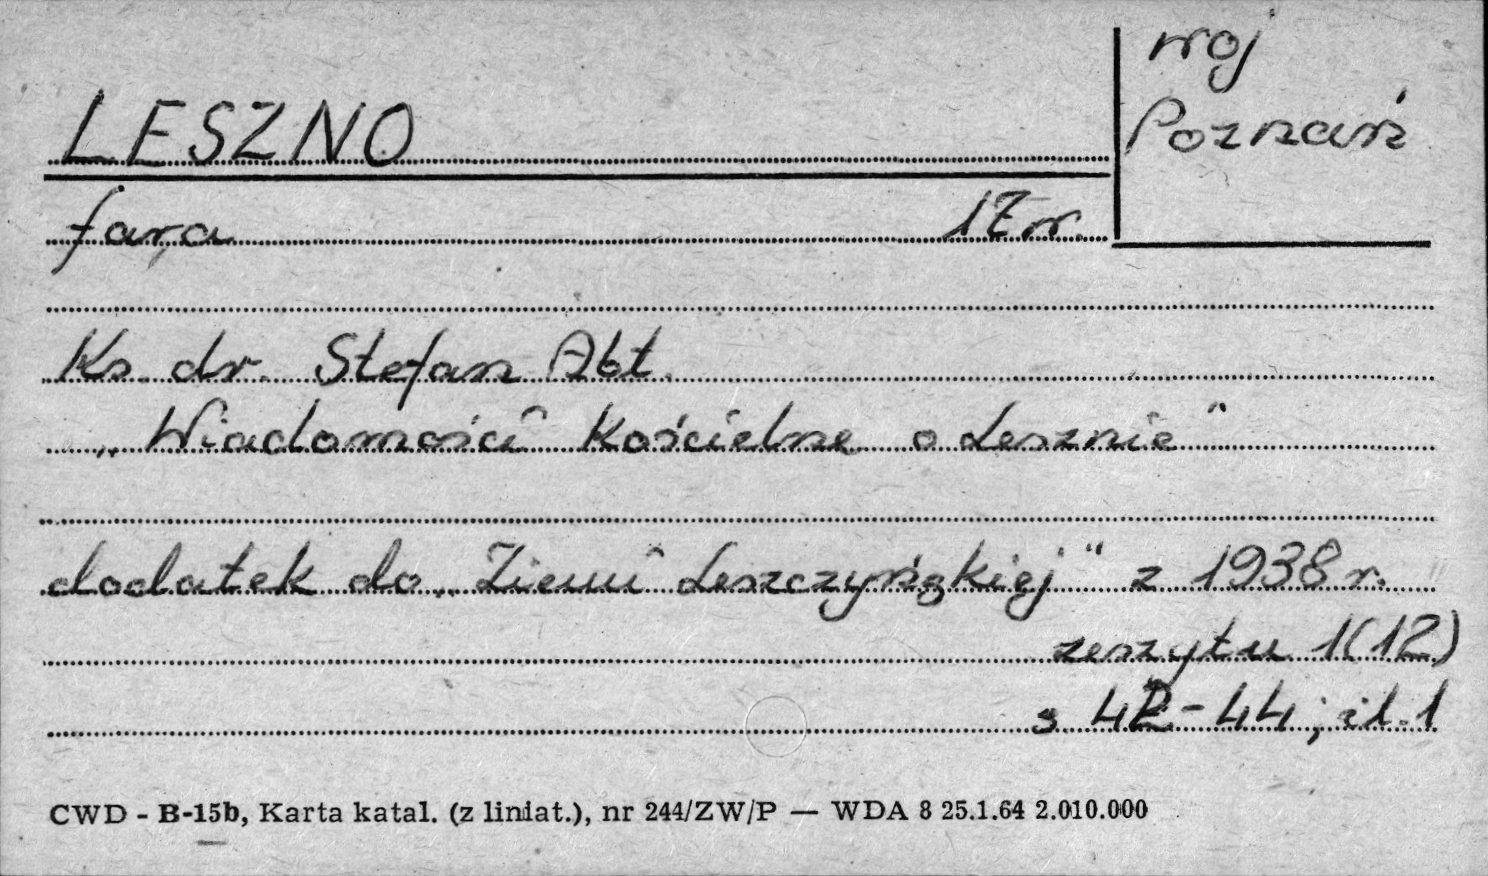 woj
Poznań
LESZNO
fara 17 w.
Ks. dr. Stefan Abt.
„Wiadomości Kościelne o Lesznie"
dodatek do „Ziemi Leszczyńskiej" z 1938 r.
zeszytu 1(12)
s. 42-44; il. 1
CWD - B-15b, Karta katal. (z liniat.), nr 244/ZW/P — WDA 8 25.1.64 2.010.000